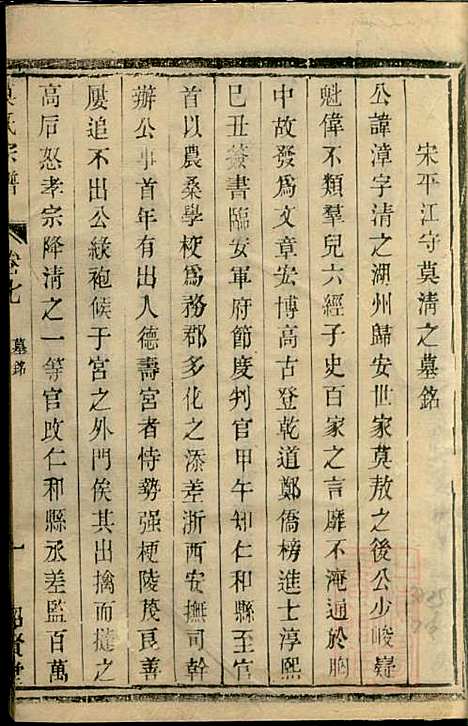 宋平江守莫清之墓銘
公諱漳字清之湖州歸安世家莫敖之後公少峻嶷
魁偉不類羣兒六經子史百家之言靡不淹通於胸
中故發爲文章宏博高古登乾道鄭僑榜進士淳熙
己丑簽書臨安軍府節度判官甲午知仁和縣至官
首以農桑學校爲務郡多化之添差浙西安撫司幹
辦公事首年有出入德壽宮者恃勢强梗陵蔑良善
屢追不出公綠袍候于宮之外門俟其出擒而撻之
高后怒孝宗降清之一等官改仁和縣丞差監百萬
莫氏宗譜
卷七
墓銘
一